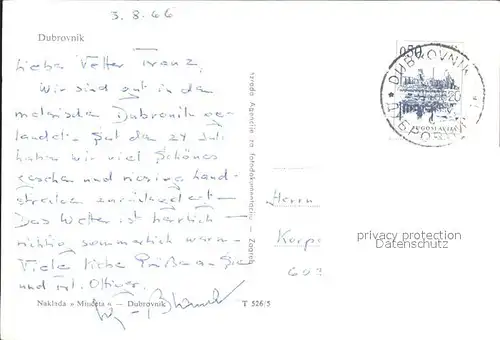 3. 8. 66
Dubrovnik
Lieber Vetter Franz,
Wir sind gut in dem
malerischen Dubrovnik ge-
landet. Seit dem 24 Juli
haben wir viel Schönes
gesehen und riesige Land-
strecken zurückgelegt —
Das Wetter ist herrlich —
richtig sommerlich warm —
Viele liebe Grüße an Sie
und
Naklada »Minčeta« — Dubrovnik
T 526/5
Agencije za fotodokumentaciju — Zagreb
0,80
DUBROVNIK
JUGOSLAVIJA
Herrn
Korps
privacy protection
Datenschutz